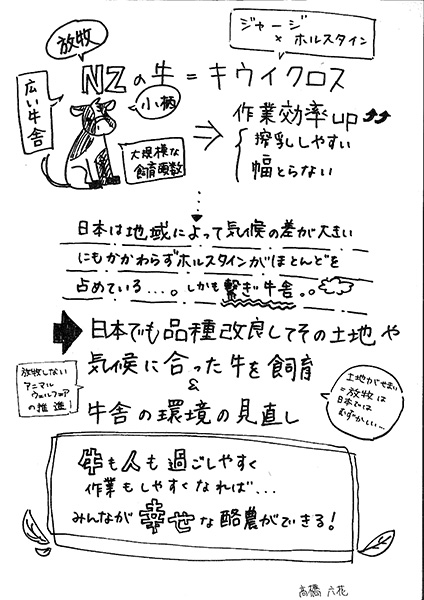 放牧
ジャージー
× ホルスタイン
NZの牛=キウイクロス
広い牛舎
小柄
大規模な
飼育頭数
⇒ 作業効率up
搾乳しやすい
幅とらない
日本は地域によって気候の差が大きい
にもかかわらずホルスタインがほとんどを
占めている...。しかも繋ぎ牛舎。。
➡日本でも品種改良してその土地や
気候に合った牛を飼育
&
牛舎の環境の見直し
放牧しない
アニマル
ウェルフェア
の推進!
土地がせまい
=放牧は
日本では
むずかしい...
牛も人も過ごしやすく
作業もしやすくなれば...
みんなが幸せな酪農ができる!
高橋 六花